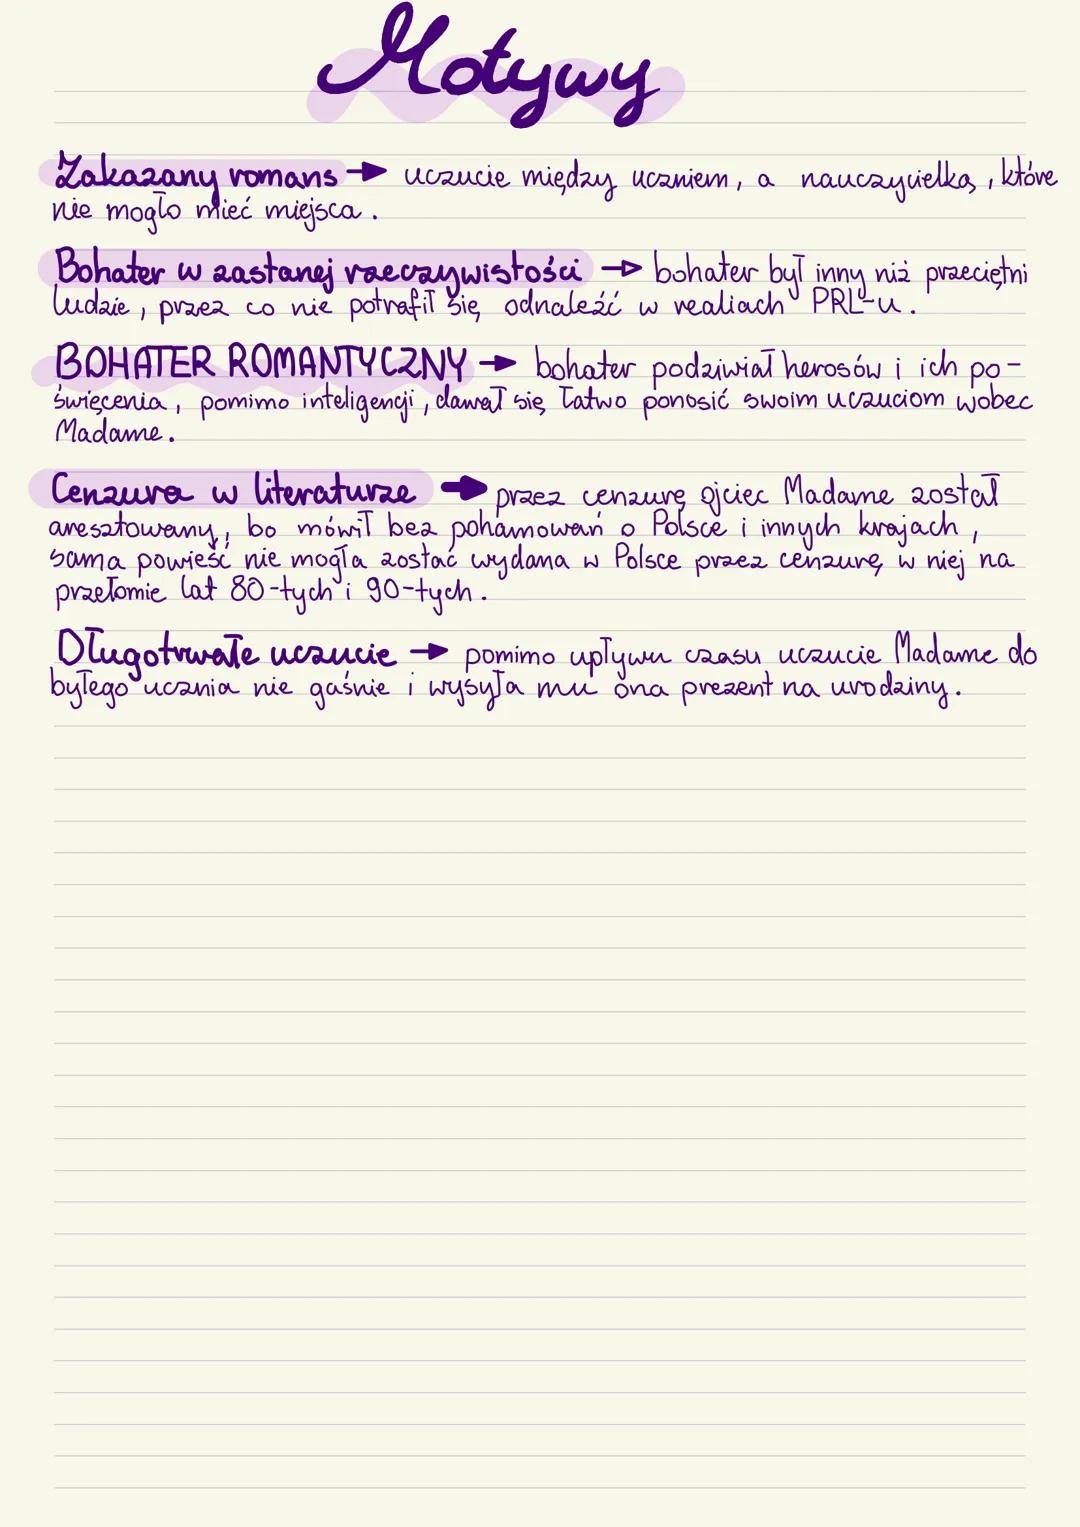 Motywy
Zakazany romans → uczucie między uczniem, a nauczycielką, które
nie mogło mieć miejsca.
Bohater w zastanej rzeczywistości → bohater był inny niż przeciętni
ludzie, przez co nie potrafił się odnaleźć w realiach PRL-u.
BOHATER ROMANTYCZNY → bohater podziwiał herosów i ich po-
święcenia, pomimo inteligencji, dawał się łatwo ponosić swoim uczuciom wobec
Madame.
Cenzura w literaturze → przez cenzurę ojciec Madame został
aresztowany, bo mówił bez pohamowań o Polsce i innych krajach,
sama powieść nie mogła zostać wydana w Polsce przez cenzurę w niej na
przełomie lat 80-tych i 90-tych.
Długotrwałe uczucie → pomimo upływu czasu uczucie Madame do
byłego ucznia nie gaśnie i wysyła mu ona prezent na urodziny.